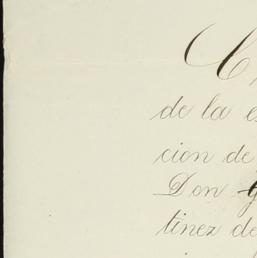 C
de la e
cion de
Don G
tinez de